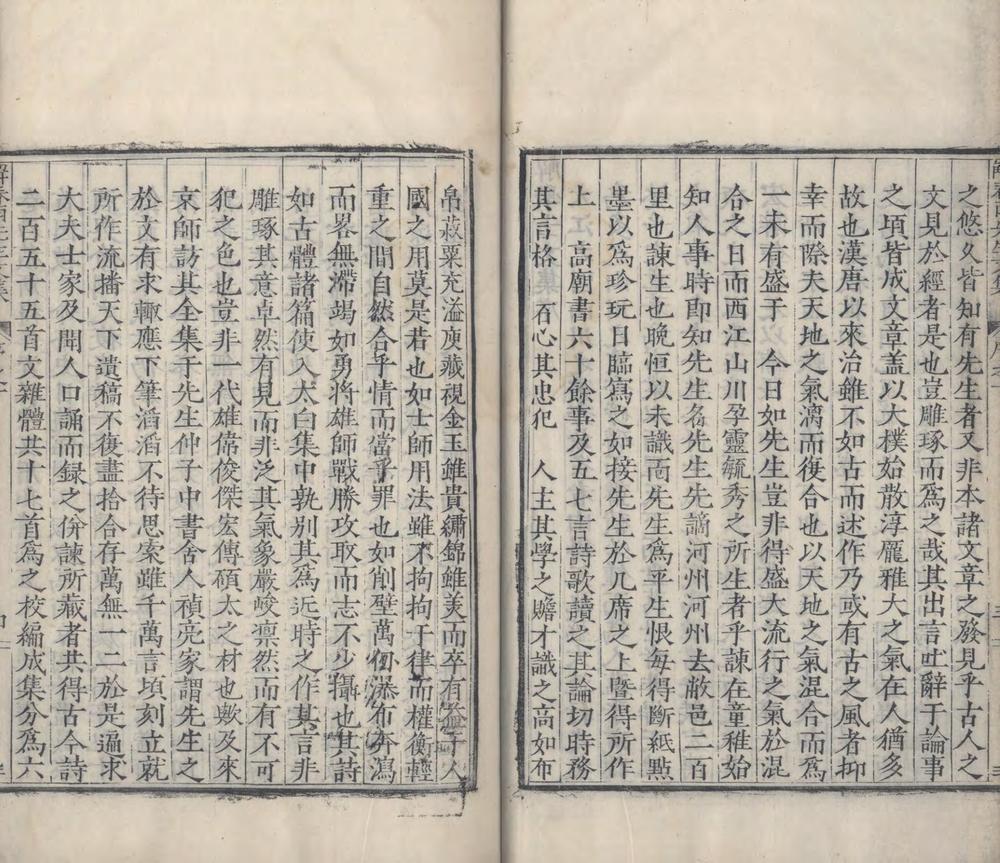 之悠久皆知有先生者又非本諸文章之發見乎古人之
文見於經者是也豈雕琢而爲之哉其出言吐辭于論事
之頃皆成文章蓋以大樸始散淳厖雅大之氣在人猶多
故也漢唐以來治雖不如古而述作乃或有古之風者抑
幸而際夫天地之氣漓而復合也以天地之氣混合而爲
一未有盛于 今日如先生豈非得盛大流行之氣於混
合之日而西江山川孕靈毓秀之所生者乎諫在童稚始
知人事時即知先生名先生先謫河州河州去敝邑二百
里也諫生也晚恒以未識而先生爲平生恨每得斷紙點
墨以爲珍玩日臨寫之如接先生於几席之上暨得所作
上 高廟書六十餘事及五七言詩歌讀之其論切時務
其言格 君心其忠犯 人主其學之贍才識之高如布
帛菽粟充溢庾藏視金玉雖貴繡錦雖美而卒有益于人
國之用莫是若也如士師用法雖不拘拘于律而權衡輕
重之間自然合乎情而當乎罪也如削壁萬仞瀑布奔瀉
而畧無滯竭如勇將雄師戰勝攻取而志不少攝也其詩
如古體諸篇使入太白集中孰别其爲近時之作其言非
雕琢其意卓然有見而非泛其氣象嚴峻凛然而有不可
犯之色也豈非一代雄儒俊傑宏傳碩太之材也歟及來
京師訪其全集于先生仲子中書舍人禎亮家謂先生之
於文有求輒應下筆滔滔不待思索雖千萬言頃刻立就
所作流播天下遺稿不復盡拾合存萬無一二於是遍求
大夫士家及聞人口誦而録之併諫所藏者共得古今詩
二百五十五首文雜體共十七首爲之校編成集分爲六